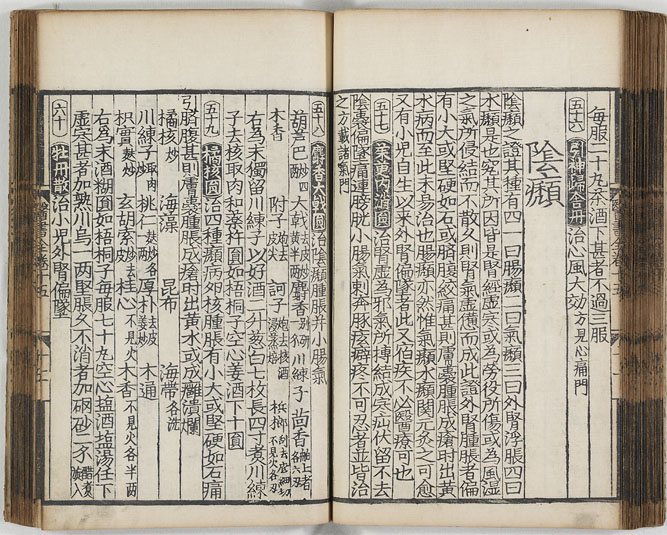 每服二十九茶酒下甚者不過三服
五十六 引神歸舍丹 治心風大効方見心痛門
陰㿗
陰㿗之證其種有四一曰腸㿗二曰氣㿗三曰外腎浮脹四曰
水㿗是也究其所因皆是腎經虛寒或為勞役所傷或為風濕
之氣所侵結而不散久則腎氣虛憊而成此證外腎腫脹者偏
有小大或堅硬如石或臍腹絞痛甚則膚囊腫脹成瘡時出黃
水病而至此未易治也腸㿗亦然惟氣㿗水㿗關元灸之可愈
又有小兒自生以來外腎偏墜者此又但疾不必醫療可也
五十七 茱萸內消圓 治腎虛為邪氣所搏結成寒疝伏留不去
陰囊偏墜痛連膀胱小腸氣刺奔豚痃癖疼不可忍者並皆治
之方載諸氣門
五十八 麝香大戟圓 治陰㿗腫脹并小腸氣
胡芦巴炒四 大戟去皮炒黃半兩 麝香別研 川練子 茴香各六
木香 附子炮去皮尖 訶子炮去核酒浸蒸焙 檳榔刮去底細切不見火各
右為末獨留川練子以好酒二升葱白七枚長四寸煮川練
子去核取肉和藥杵圓如梧桐子空心姜酒下十圓
五十九 橘核圓 治四種㿗病卵核腫脹有小大或堅硬如石痛
引臍腹甚則膚囊腫脹成瘡時出黃水或成癰潰爛
橘核炒 海藻 昆布 海帶各洗
川練子取肉炒 桃仁麸炒各 厚朴去皮姜炒 木通
枳實麸炒 玄胡索炒去皮 桂心不見火 木香不見火各半兩
右為末酒糊圓如梧桐子每服七十九空心塩酒塩湯任下
虛寒甚者加熟川烏一兩堅脹久不消者加硇砂二錢醋煮旋入
六十 牡丹散 治小兒外腎偏墜